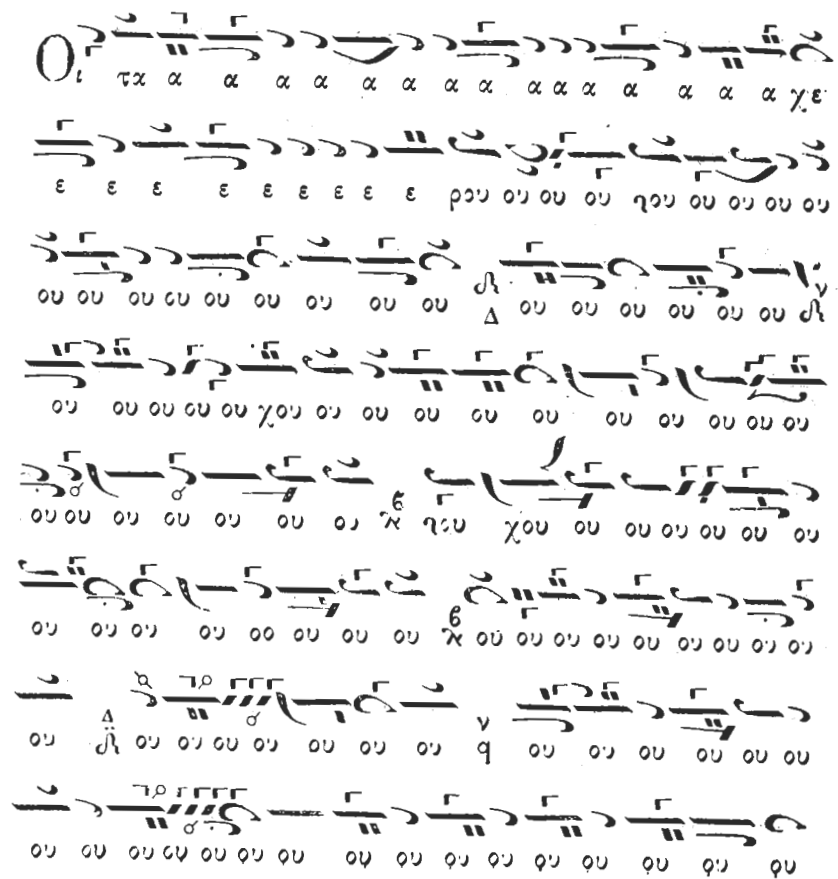 Οι τα α α α α α α α α α α α α α α α χε
ε ε ε ε ε ε ε ε ε ρου ου ου ου ηου ου ου ου ου
ου ου ου ου ου ου ου ου ου Δ ου ου ου ου ου ου ν
ου ου ου ου ου χου ου ου ου ου ου ου ου ου ου ου
ου ου ου ου ου ου ου β ηου χου ου ου ου ου ου ου
ου ου ου ου ου ου ου ου β ου ου ου ου ου ου ου ου ου
ου Δ ου ου ου ου ου ου ου ν q ου ου ου ου ου ου
ου ου ου ου ου ου ου ου ου ου ου ου ου ου ου ου